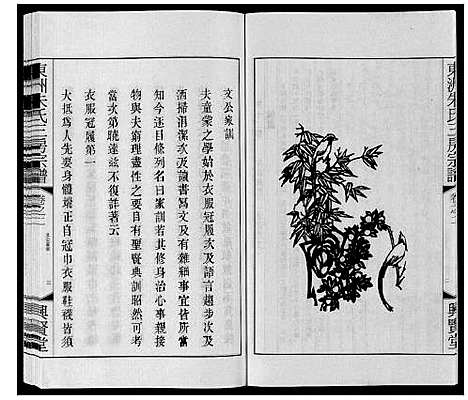 東洲朱氏三房宗譜
卷之二
興賢堂
文公家訓
夫童蒙之學始於衣服冠履次及語言趨步次及
洒掃涓潔次及讀書寫文及有雜細事宜皆所當
知今逐目條列名曰家訓若其修身治心事親接
物與夫窮理盡性之要自有聖賢典訓昭然可考
當次第曉達茲不復詳著云
衣服冠履第一
大抵為人先要身體端正自冠巾衣服鞋襪皆須
東洲朱氏三房宗譜
卷之二
三
興賢堂